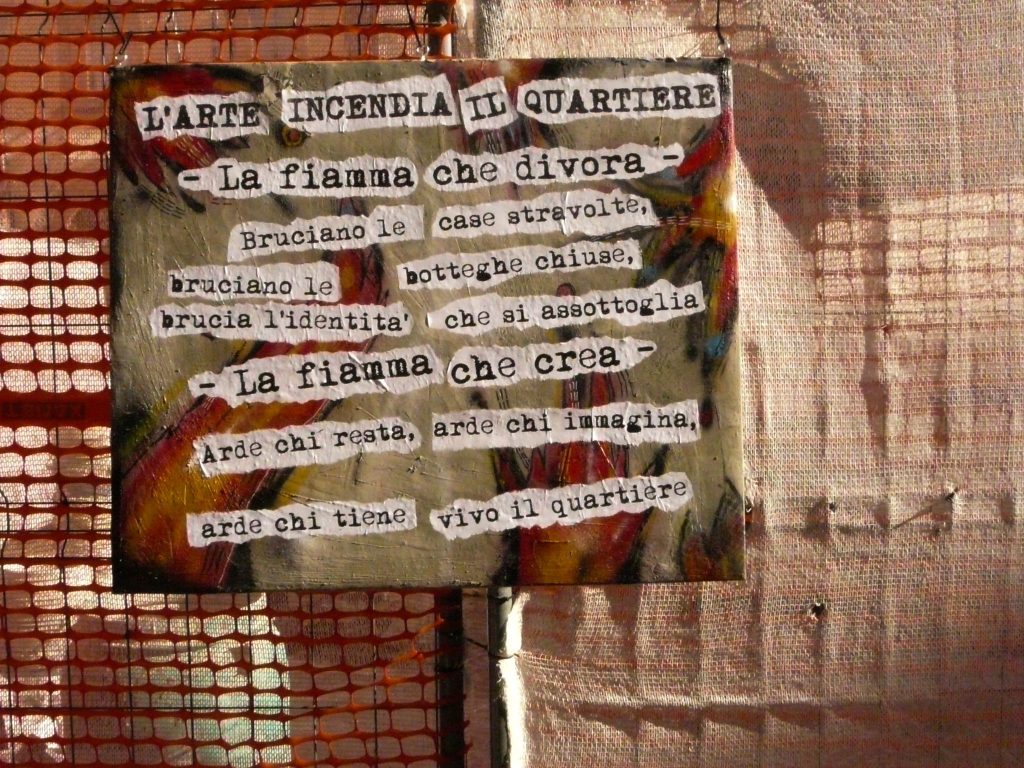 L'ARTE INCENDIA IL QUARTIERE
- La fiamma che divora -
Bruciano le case stravolte,
bruciano le botteghe chiuse,
brucia l'identita' che si assottoglia
- La fiamma che crea -
Arde chi resta, arde chi immagina,
arde chi tiene vivo il quartiere